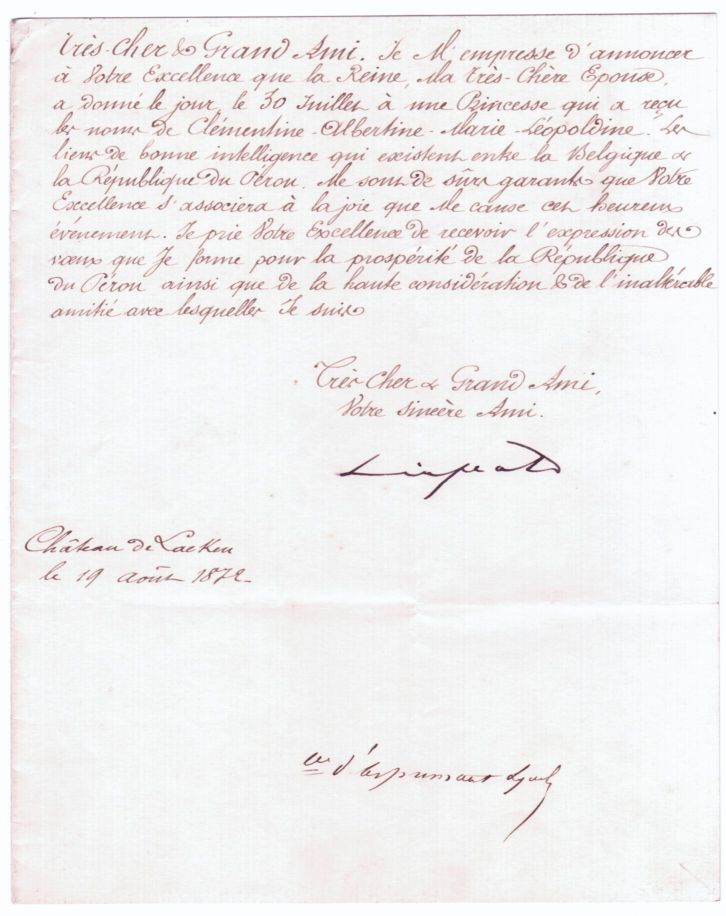 Très-Cher & Grand Ami. Je M'empresse d'annoncer
à Votre Excellence que la Reine, Ma très-Chère Epouse,
a donné le jour, le 30 Juillet à une Princesse qui a reçu
les noms de Clémentine-Albertine-Marie-Léopoldine. Les
liens de bonne intelligence qui existent entre la Belgique &
la République du Pérou, Me sont de sûrs garants que Votre
Excellence S'associera à la joie que Me cause cet heureux
événement. Je prie Votre Excellence de recevoir l'expression des
vœux que Je forme pour la prospérité de la République
du Pérou ainsi que de la haute considération & de l'inaltérable
amitié avec lesquelles Je suis
Très Cher & Grand Ami,
Votre Sincère Ami.
Léopold
Château de Laeken
le 19 août 1872.
d'Aspremont Lynden